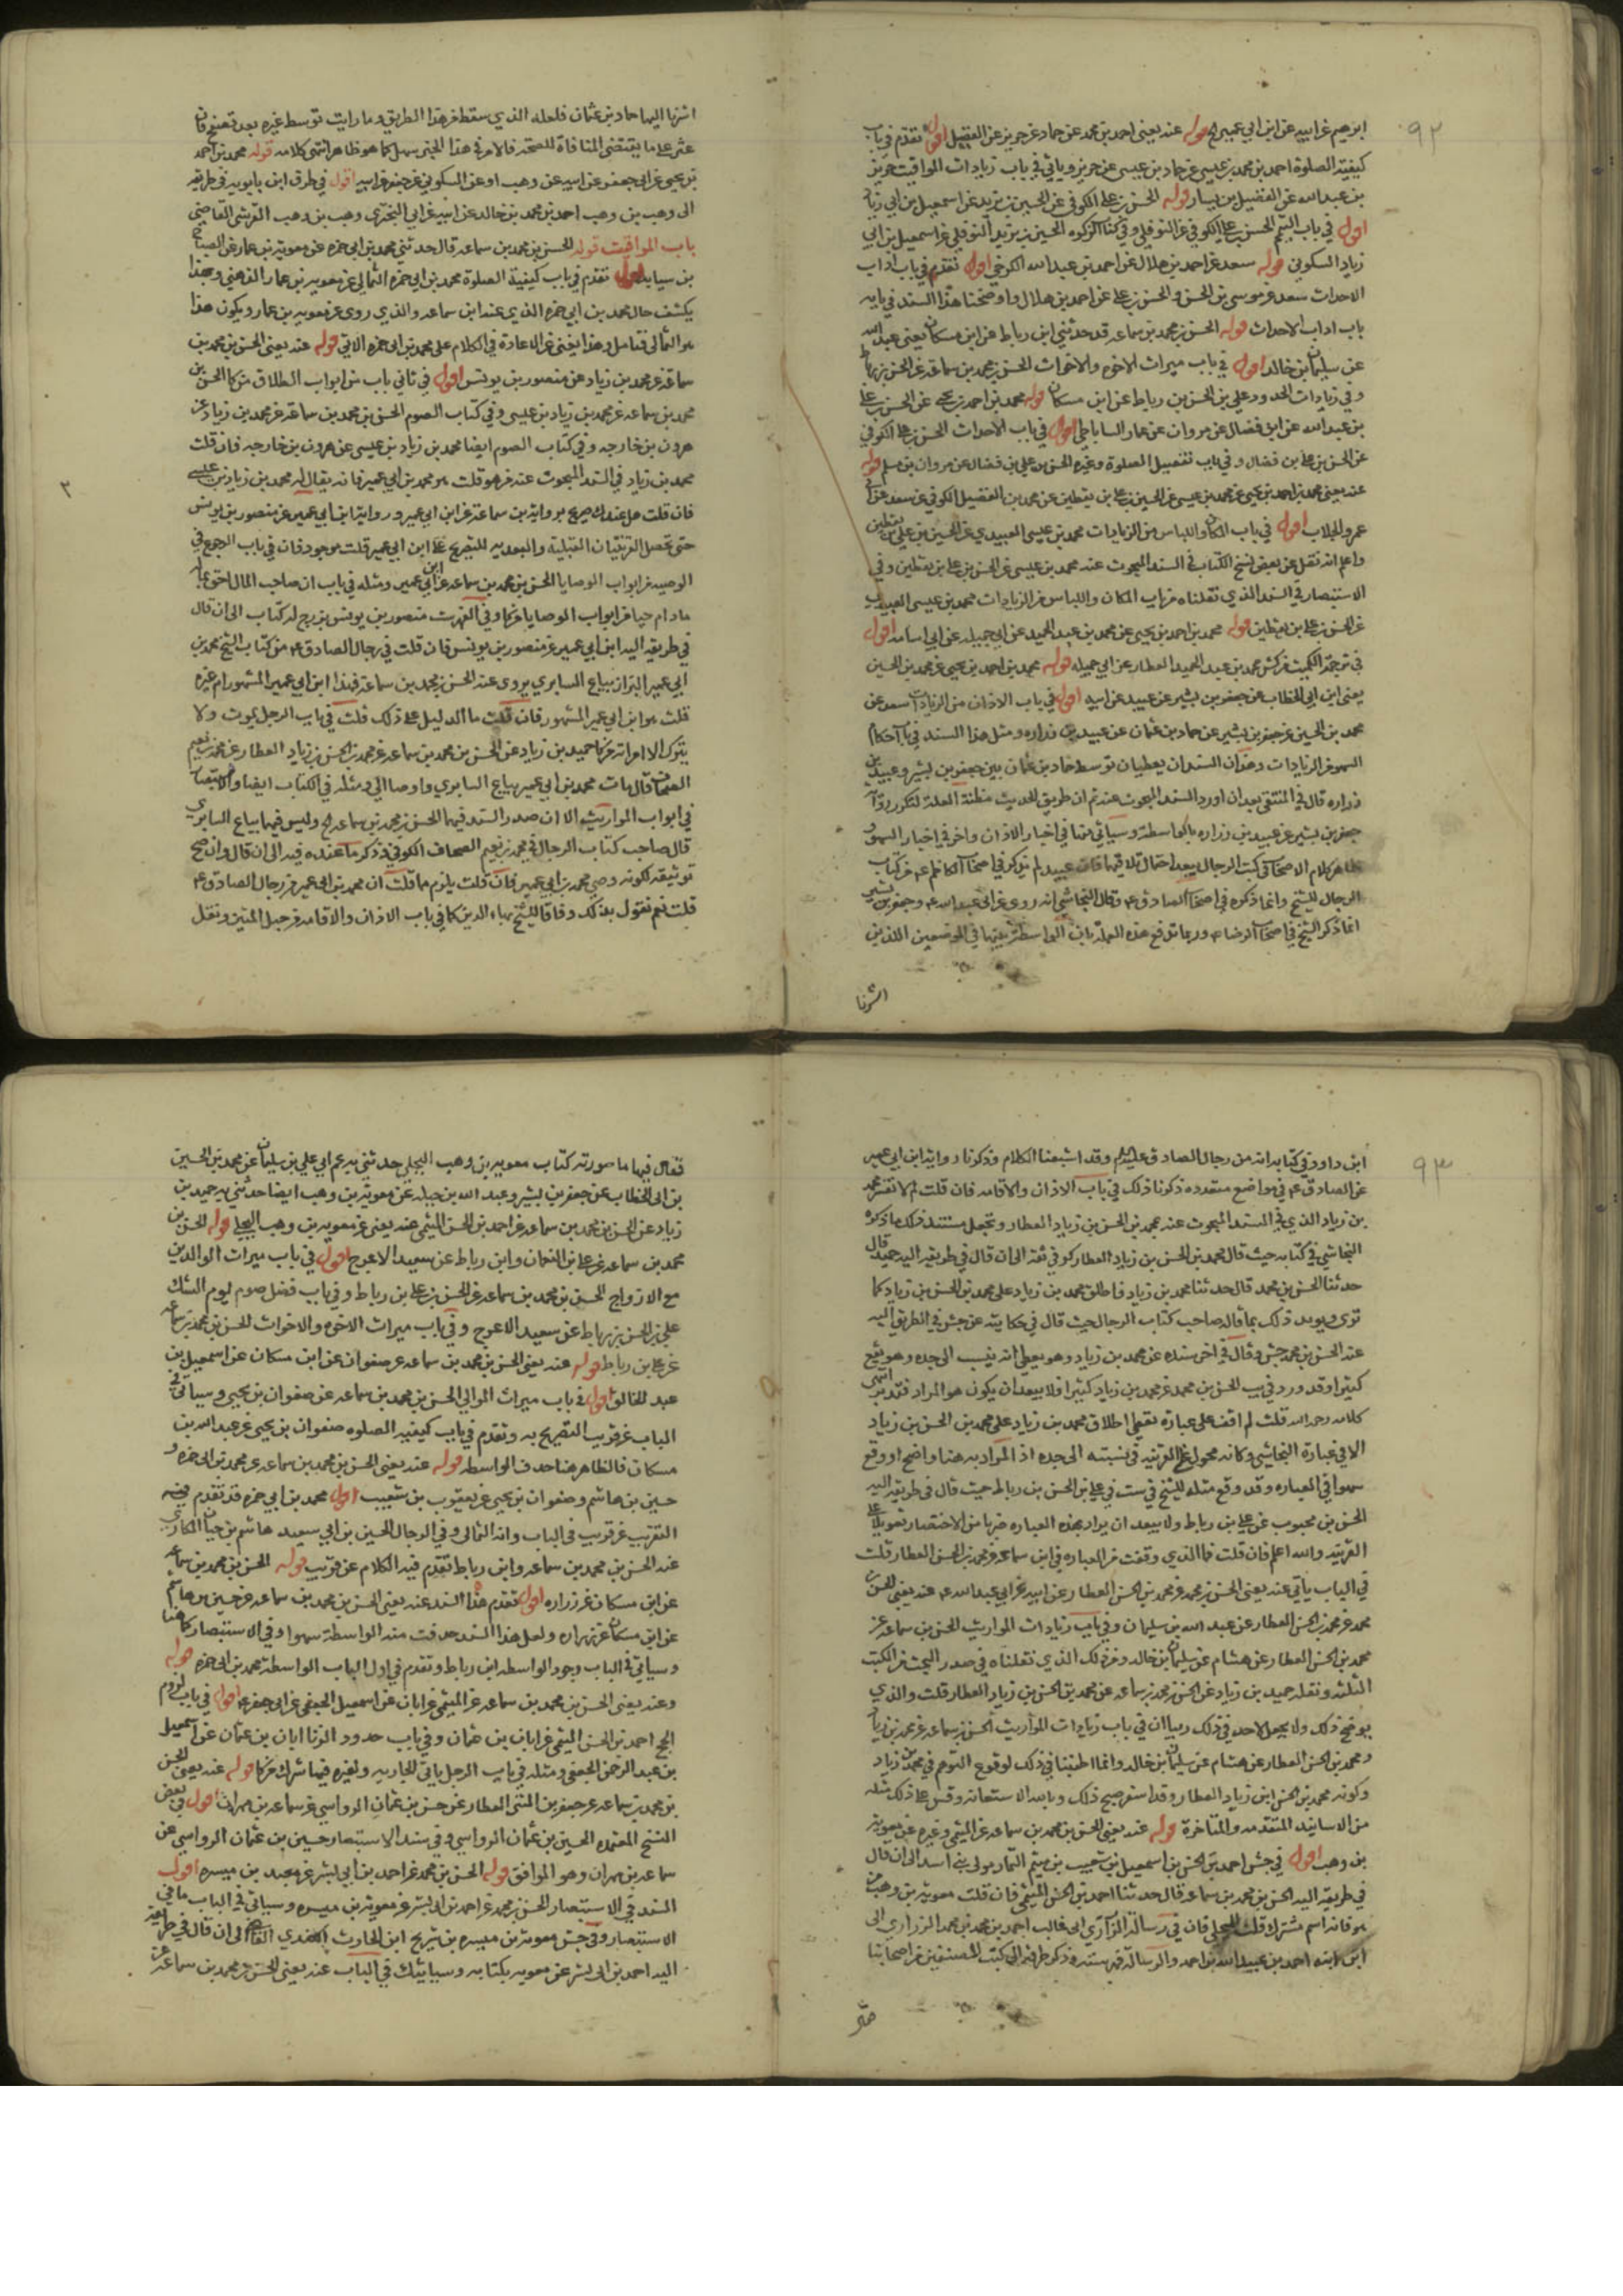 ٩٢
ابرهيم عن ابيه عن ابن ابي عمير الخ قوله عنه يعني احمد بن محمد عن حماد عن حريز عن الفضيل اقول تقدم في باب
كيفية الصلوة احمد بن محمد بن عيسى عن حماد بن عيسى عن حريز وياتي في باب زيادات المواقيت حريز
بن عبدالله عن الفضيل بن يسار قوله الحسن بن علي الكوفي عن الحسين بن يزيد عن اسمعيل بن ابي زياد
اقول في باب التيمم الحسن بن علي الكوفي عن النوفلي وفي الحسين بن يزيد النوفلي عن اسمعيل بن ابي
زياد السكوني قوله سعد عن احمد بن هلال عن احمد بن عبدالله الكرخي اقول تقدم في باب اداب
الاحداث سعد عن موسى بن الحسن والحسن بن علي عن احمد بن هلال واوضحنا هذا السند في بابه
باب اداب الاحداث قوله الحسن بن محمد بن سماعه قد حدثني ابن رباط عن ابن مسكان يعني عبد الله
عن سليمان بن خالد اقول في باب ميراث الاخوه والاخوات الحسن بن محمد بن سماعة عن الحسن بن رباط
وفي زيادات الحدود علي بن الحسن بن رباط عن ابن مسكان قوله محمد بن احمد بن يحيى عن الحسن بن علي
بن عبدالله عن ابن فضال عن مروان عن عمار الساباطي اقول في باب الاحداث الحسن بن علي الكوفي
عن الحسن بن علي بن فضال وفي باب تفصيل الصلوة وغيره الحسن بن علي بن فضال عن مروان بن مسلم قوله
عنه يعني محمد بن احمد بن يحيى عن محمد بن عيسى عن الحسين بن علي بن يقطين عن محمد بن الفضيل الكوفي عن سعد عن
عمرو الجلاب اقول في باب المكان واللباس من الزيادات محمد بن عيسى العبيدي عن الحسن بن علي بن يقطين
واعلم انه نقل عن بعض نسخ الكتاب في السند المبحوث عنه محمد بن عيسى عن الحسن بن علي بن يقطين وفي
الاستبصار في السند الذي نقلناه من باب المكان واللباس من الزيادات محمد بن عيسى العبيدي
عن الحسن بن علي بن يقطين قوله محمد بن احمد بن يحيى عن محمد بن عبد الحميد عن ابي جميله عن ابي اسامه اقول
في ترجمة الكميت من كش محمد بن عبد الحميد العطار عن ابي جميله قوله محمد بن احمد بن يحيى عن محمد بن الحسين
يعني ابن ابي الخطاب عن جعفر بن بشير عن عبيد عن ابيه اقول في باب الاذان من الزيادات سعد عن
محمد بن الحسين عن جعفر بن بشير عن حماد بن عثمان عن عبيد بن زراره ومثل هذا السند في باب احكام
السهو من الزيادات وهذان السندان يعطيان توسط حماد بن عثمان بين جعفر بن بشير وعبيد بن
زراره قال في المنتقى بعد ان اورد السند المبحوث عنه ثم ان طريق الحديث مظنة العلة لتكرر رواية
جعفر بن بشير عن عبيد بن زراره بالواسطة وسياتي منها في اخبار الاذان واخر في اخبار السهو
ظاهر كلام الاصحاب في كتب الرجال يبعد احتمال تلاقيهما فان عبيد لم يذكر في اصحاب الكاظم ع من كتاب
الرجال للشيخ وانما ذكره في اصحاب الصادق ع وقال النجاشي انه روى عن ابي عبد الله ع وجعفر بن بشير
انما ذكر الشيخ في اصحاب الرضا ع وربما تدفع هذه العلة بان الواسطة بينهما في الموضعين اللذين
اشرنا
اشرنا اليهما حماد بن عثمان فلعله الذي سقط من هذا الطريق وما رايت توسط غيره بعد تصفح فان
عثر على ما يقتضي المنافاة للصحه فالامر في هذا الخبر سهل كما هو ظاهر انتهى كلامه قوله محمد بن احمد
بن يحيى عن ابي جعفر عن ابيه عن وهب او عن السكوني عن جعفر عن ابيه اقول في طرق ابن بابويه في طريقه
الى وهب بن وهب احمد بن محمد بن خالد عن ابيه عن ابي البختري وهب بن وهب القرشي القاضي
باب المواقيت قوله الحسن بن محمد بن سماعه قال حدثني محمد بن ابي حمزه عن معوية بن عمار عن الصباح
بن سيابه اقول تقدم في باب كيفية الصلوة محمد بن ابي حمزه الثمالي عن معويه بن عمار الدهني وبهذا
يكشف حال محمد بن ابي حمزه الذي عند ابن سماعه والذي روى عن معويه بن عمار ويكون هذا
هو الثمالي فتامل وهذا يغني عن الاعادة في الكلام على محمد بن ابي حمزه الاتي قوله عنه يعني الحسن بن محمد بن
سماعة عن محمد بن زياد عن منصور بن يونس اقول في ثاني باب من ابواب الطلاق من كا الحسن بن
محمد بن سماعه عن محمد بن زياد بن عيسى وفي كتاب الصوم الحسن بن محمد بن سماعة عن محمد بن زياد عن
هرون بن خارجه وفي كتاب الصوم ايضا محمد بن زياد بن عيسى عن هرون بن خارجه فان قلت
محمد بن زياد في السند المبحوث عنه من هو قلت هو محمد بن ابي عمير فانه يقال له محمد بن زياد بن عيسى
فان قلت هل عندك صريح برواية ابن سماعة عن ابن ابي عمير ورواية ابن ابي عمير عن منصور بن يونس
حتى تحصل القرينتان القبلية والبعديه للتصريح على ابن ابي عمير قلت موجود فان في باب الرجوع في
الوصيه من ابواب الوصايا الحسن بن محمد بن سماعه عن ابن ابي عمير ومثله في باب ان صاحب المال احق بماله
مادام حيا من ابواب الوصايا من كا وفي الفهرست منصور بن يونس بزرج له كتاب الى ان قال
في طريقه اليه ابن ابي عمير عن منصور بن يونس فان قلت في رجال الصادق ع من كتاب الشيخ محمد بن
ابي عمير البزاز بياع السابري يروى عنه الحسن بن محمد بن سماعة فهذا ابن ابي عمير المشهور ام غيره
قلت هو ابن ابي عمير المشهور فان قلت ما الدليل على ذلك قلت في باب الرجل يموت ولا
يترك الا امراته من كا حميد بن زياد عن الحسن بن محمد بن سماعه عن محمد بن الحسن بن زياد العطار عن محمد بن نعيم
الصحاف قال مات محمد بن ابي عمير بياع السابري واوصا الي ومثله في الكتاب ايضا والاستبصار
في ابواب المواريث الا ان صدر السند فيهما الحسن بن محمد بن سماعه الخ وليس فيهما بياع السابري
قال صاحب كتاب الرجال في محمد بن نعيم الصحاف الكوفي ذكر ما عنده فيه الى ان قال وان صح
توثيقه لكونه وصي محمد بن ابي عمير فان قلت يلزم مما قلت ان محمد بن ابي عمير من رجال الصادق ع
قلت نعم نقول بذلك وفاقا للشيخ بهاء الدين كما في باب الاذان والاقامه من حبل المتين ونقل
٩٣
ابن داود في كتابه انه من رجال الصادق عليه السلام وقد اشبعنا الكلام وذكرنا رواية ابن ابي عمير
عن الصادق ع في مواضع متعدده ذكرنا ذلك في باب الاذان والاقامه فان قلت لم لا تفسر محمد
بن زياد الذي في السند المبحوث عنه بمحمد بن الحسن بن زياد العطار وتجعل مستند ذلك ما ذكره
النجاشي في كتابه حيث قال محمد بن الحسن بن زياد العطار كوفي ثقة الى ان قال في طريقه اليه حميد قال
حدثنا الحسن بن محمد قال حدثنا محمد بن زياد فاطلق محمد بن زياد على محمد بن الحسن بن زياد كما
ترى ويويد ذلك بما قاله صاحب كتاب الرجال حيث قال في حكايته عن جش في الطريق اليه
عنه الحسن بن محمد جش وقال في اخر سنده عن محمد بن زياد وهو يعطي انه ينسب الى جده وهو شايع
كثيرا وقد ورد في يب الحسن بن محمد عن محمد بن زياد كثيرا فلا يبعد ان يكون هو المراد فتدبر انتهى
كلامه رحمه الله قلت لم اقف على عبارة تعطي اطلاق محمد بن زياد على محمد بن الحسن بن زياد
الا في عبارة النجاشي وكانه محمول على القرينه في نسبته الى جده اذ المراد به هنا واضح او وقع
سهوا في العباره وقد وقع مثله للشيخ في ست في علي بن الحسن بن رباط حيث قال في طريقه اليه
الحسن بن محبوب عن علي بن رباط ولا يبعد ان يراد بهذه العباره ضربا من الاختصار تعويلا على
القرينه والله اعلم فان قلت فما الذي وقفت من العباره في ابن سماعه عن محمد بن الحسن العطار قلت
في الباب ياتي عنه يعني الحسن بن محمد عن محمد بن الحسن العطار عن ابيه عن ابي عبدالله ع عنه يعني الحسن بن
محمد عن محمد بن الحسن العطار عن عبد الله بن سليمان وفي باب زيادات المواريث الحسن بن سماعه عن
محمد بن الحسن العطار عن هشام عن سليمان بن خالد ومن ذلك الذي نقلناه في صدر البحث من الكتب
الثلثه ونقله حميد بن زياد عن الحسن بن محمد بن سماعه عن محمد بن الحسن بن زياد العطار قلت والذي
يوضح ذلك ولا يجعل لاحد في ذلك ريبا ان في باب زيادات المواريث الحسن بن سماعه عن محمد بن زياد
ومحمد بن الحسن العطار عن هشام عن سليمان بن خالد وانما اطنبنا في ذلك لوقوع التوهم في محمد بن زياد
وكونه محمد بن الحسن ابن زياد العطار وقد اسفر صبح ذلك وبالله الاستعانة وقس على ذلك مثله
من الاسانيد المتقدمه والمتاخرة قوله عنه يعني الحسن بن محمد بن سماعه عن الميثمي وغيره عن معوية
بن وهب اقول في جش احمد بن الحسن بن اسمعيل بن شعيب بن ميثم التمار مولى بني اسد الى ان قال
في طريقه اليه الحسن بن محمد بن سماعه قال حدثنا احمد بن الحسن الميثمي فان قلت معوية بن وهب من
هو فانه اسم مشترك قلت البجلي فان في رسالة الزراري ابي غالب احمد بن محمد بن محمد الزراري الى
ابن ابنه احمد بن عبيد الله بن احمد والرسالة فهرسته وذكر طرقه الى كتب المصنفين من اصحابنا
فقال فيها ما صورته كتاب معويه بن وهب البجلي حدثني به عم ابي علي بن سليمان عن محمد بن الحسين
بن ابي الخطاب عن جعفر بن بشير وعبد الله بن جبله عن معوية بن وهب ايضا حدثني به حميد بن
زياد عن الحسن بن محمد بن سماعه عن احمد بن الحسن الميثمي عنه يعني عن معويه بن وهب البجلي قوله الحسن بن
محمد بن سماعه عن علي بن النعمان وابن رباط عن سعيد الاعرج اقول في باب ميراث الوالدين
مع الازواج الحسن بن محمد بن سماعه عن الحسن بن علي بن رباط وفي باب فضل صوم يوم الشك
علي بن الحسن بن رباط عن سعيد الاعرج وفي باب ميراث الاخوه والاخوات الحسن بن محمد بن سماعه
عن علي بن رباط قوله عنه يعني الحسن بن محمد بن سماعه عن صفوان عن ابن مسكان عن اسمعيل بن
عبد الخالق اقول في باب ميراث الموالي الحسن بن محمد بن سماعه عن صفوان بن يحيى وسياتي في
الباب عن قريب التصريح به وتقدم في باب كيفيه الصلوه صفوان بن يحيى عن عبد الله بن
مسكان فالظاهر هنا حذف الواسطه قوله عنه يعني الحسن بن محمد بن سماعه عن محمد بن ابي حمزه و
حسين بن هاشم وصفوان بن يحيى عن يعقوب بن شعيب اقول محمد بن ابي حمزه قد تقدم فيه
التقريب عن قريب في الباب وانه الثمالي وفي الرجال الحسين بن ابي سعيد هاشم بن حيان المكاري
عنه الحسن بن محمد بن سماعه وابن رباط تقدم فيه الكلام عن قريب قوله الحسن بن محمد بن سماعه
عن ابن مسكان عن زراره اقول تقدم هذا السند عنه يعني الحسن بن محمد بن سماعه عن حسين بن هاشم
عن ابن مسكان عن زراره ولعل هذا السند حذفت منه الواسطة سهوا وفي الاستبصار كما هنا
وسياتي في الباب وجود الواسطه ابن رباط وتقدم في اول الباب الواسطة محمد بن ابي حمزه قوله
وعنه يعني الحسن بن محمد بن سماعه عن الميثمي عن ابان عن اسمعيل الجعفي عن ابي جعفر ع اقول في باب لزوم
الحج احمد بن الحسن الميثمي عن ابان بن عثمان وفي باب حدود الزنا ابان بن عثمان عن اسمعيل
بن عبد الرحمن الجعفي ومثله في باب الرجل ياتي الجاريه ولغيره فيها شرك من كا قوله عنه يعني الحسن
بن محمد بن سماعه عن جعفر بن المثنى العطار عن حسن بن عثمان الرواسي عن سماعه بن مهران اقول في بعض
النسخ المعتمده الحسين بن عثمان الرواسي وفي سند الاستبصار حسين بن عثمان الرواسي عن
سماعه بن مهران وهو الموافق قوله الحسن بن محمد عن احمد بن ابي بشر عن معبد بن ميسره اقول
السند في الاستبصار الحسن بن محمد عن احمد بن ابي بشر عن معوية بن ميسره وسياتي في الباب ما في
الاستبصار وفي جش معويه بن ميسره بن شريح ابن الحارث الكندي القاضي الى ان قال في طريقه
اليه احمد بن ابي بشر عن معويه بكتابه وسياتيك في الباب عنه يعني الحسن بن محمد بن سماعه عن